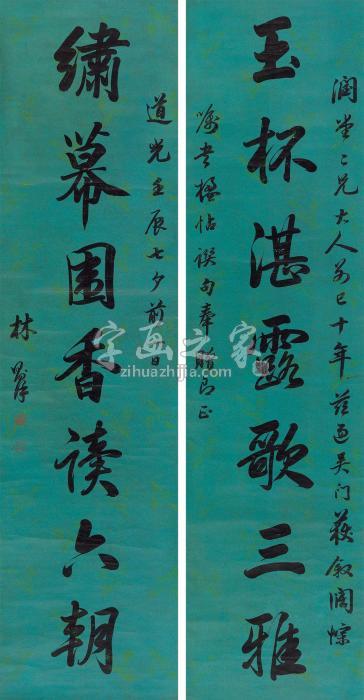 潤堂二兄大人別已十年茲過吳門獲叙濶悰
玉杯湛露歌三雅
屬書楹帖撰句奉贈即正
道光壬辰七夕前日
繡幕圍香讀六朝
林則徐
字画之家
zihuazhijia.com